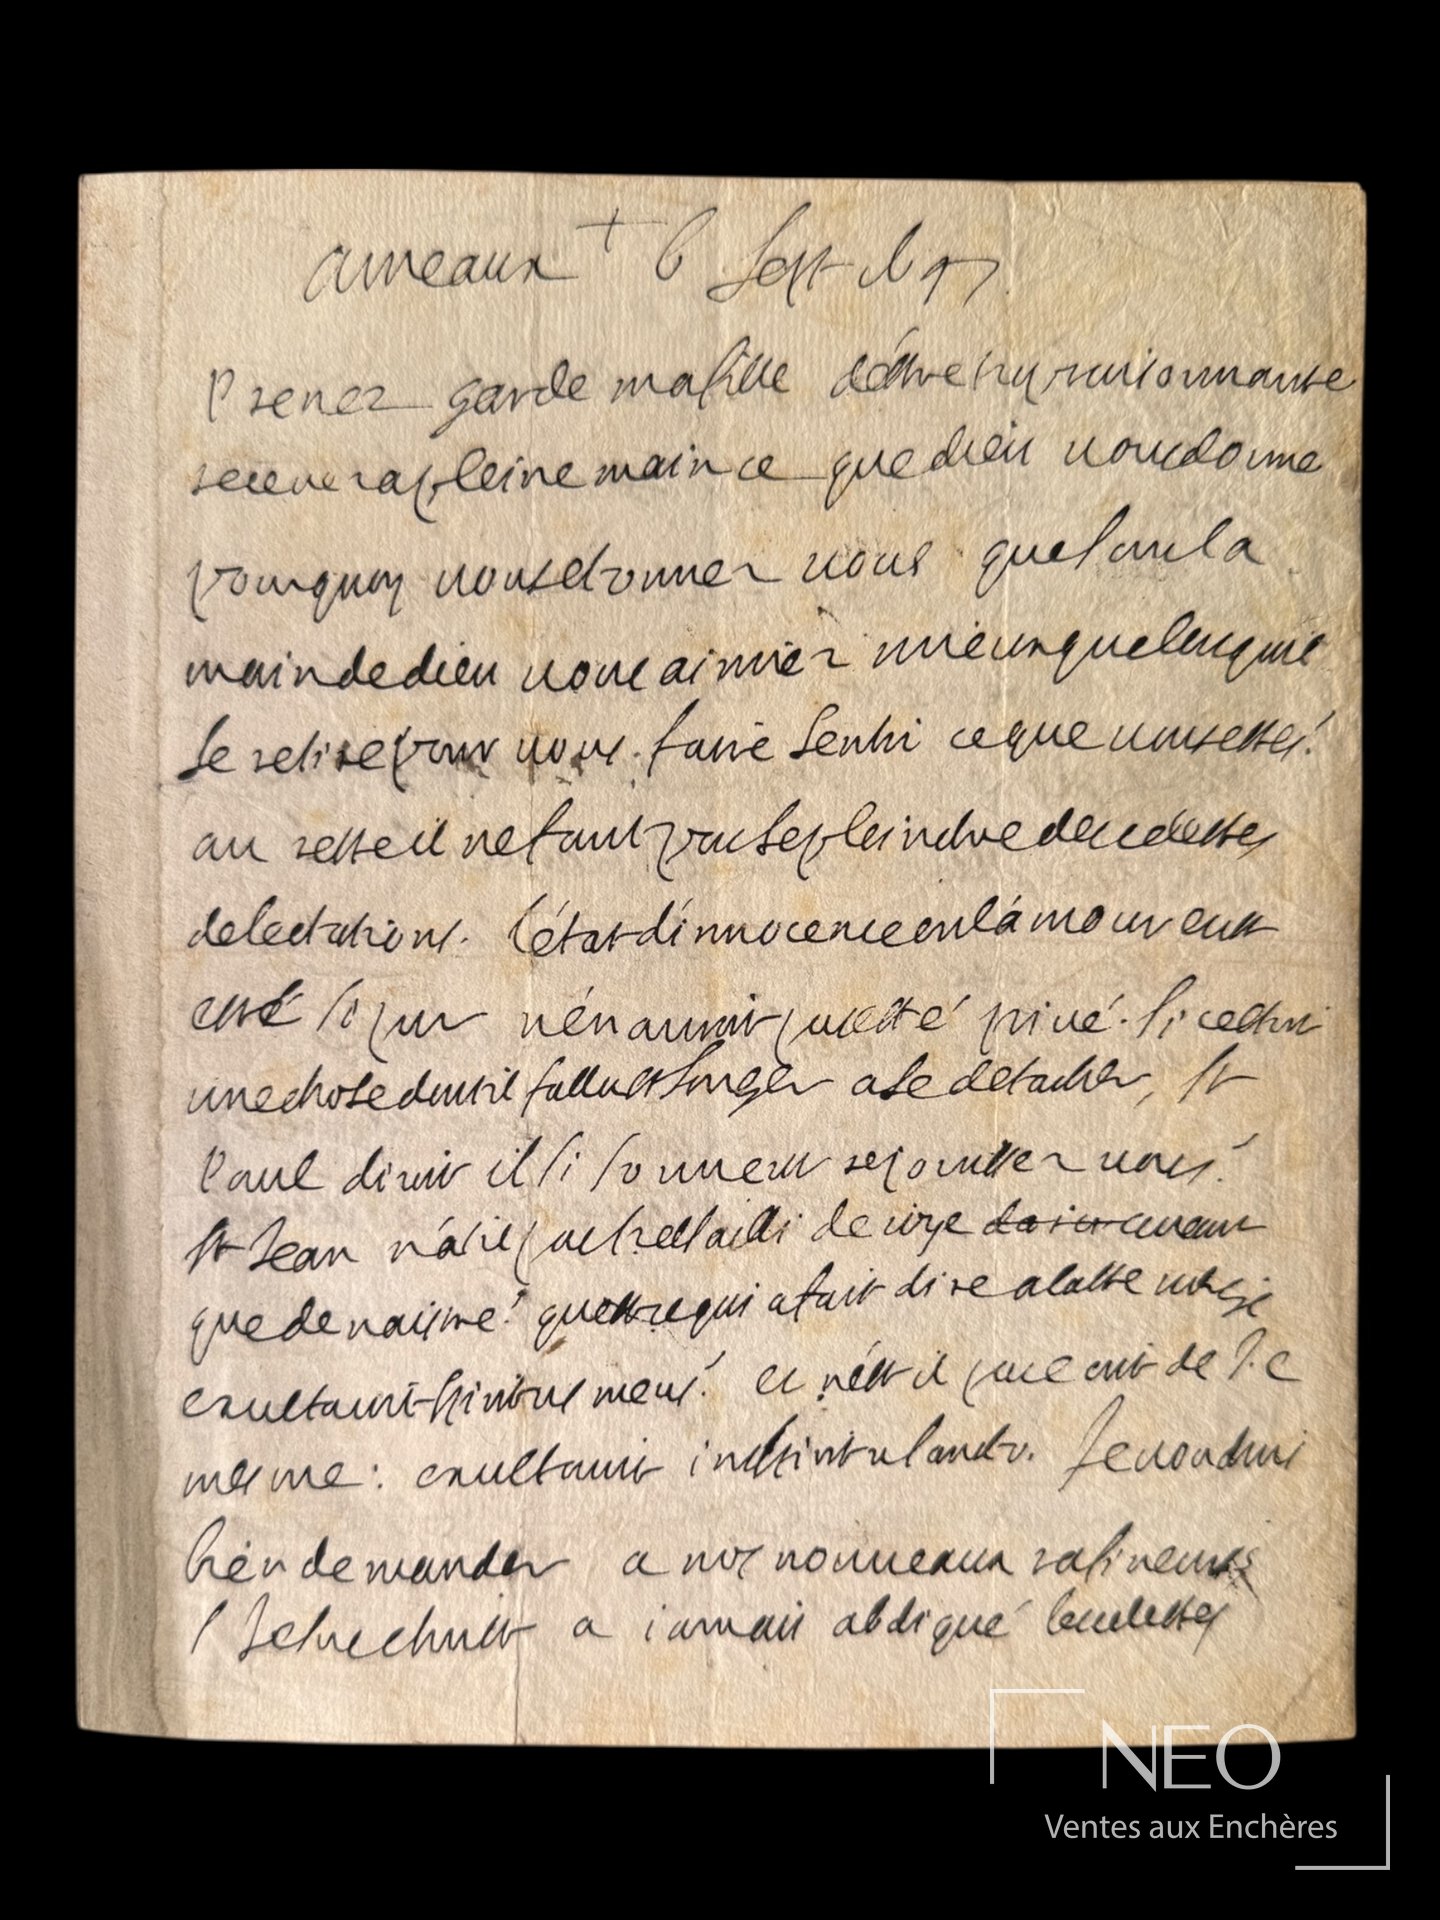 a meaux + 6 sept
Prenez garde ma fille d'être trop raisonnante
receuez a pleine main ce que dieu vous donne
pourquoy vous etonner vous que sous la
main de dieu vous aimiez mieux que lorsquil
se retire pour vous faire sentir ce que vous estes?
au reste il ne faut pas se pleindre de celestes
delectations. l'état d'innocence ou l'amour eust
esté si pur n'en auroit pas esté privé. si cestoit
une chose dont il fallust songer a se detacher, St
Paul diroit il si souuent rejouissez vous?
St Jean n'a il pas tressailli de joye avant
que de naistre? qu'est ce qui a fait dire a la Ste vierge
exultauit spiritus meus? et n'est il pas escrit de J. C
mesme: exultauit in spiritu sancto. Je voudrois
bien demander a nos nouueaux rafineurs
si Jesus christ a iamais abdiqué les celestes
NEO
Ventes aux Enchères